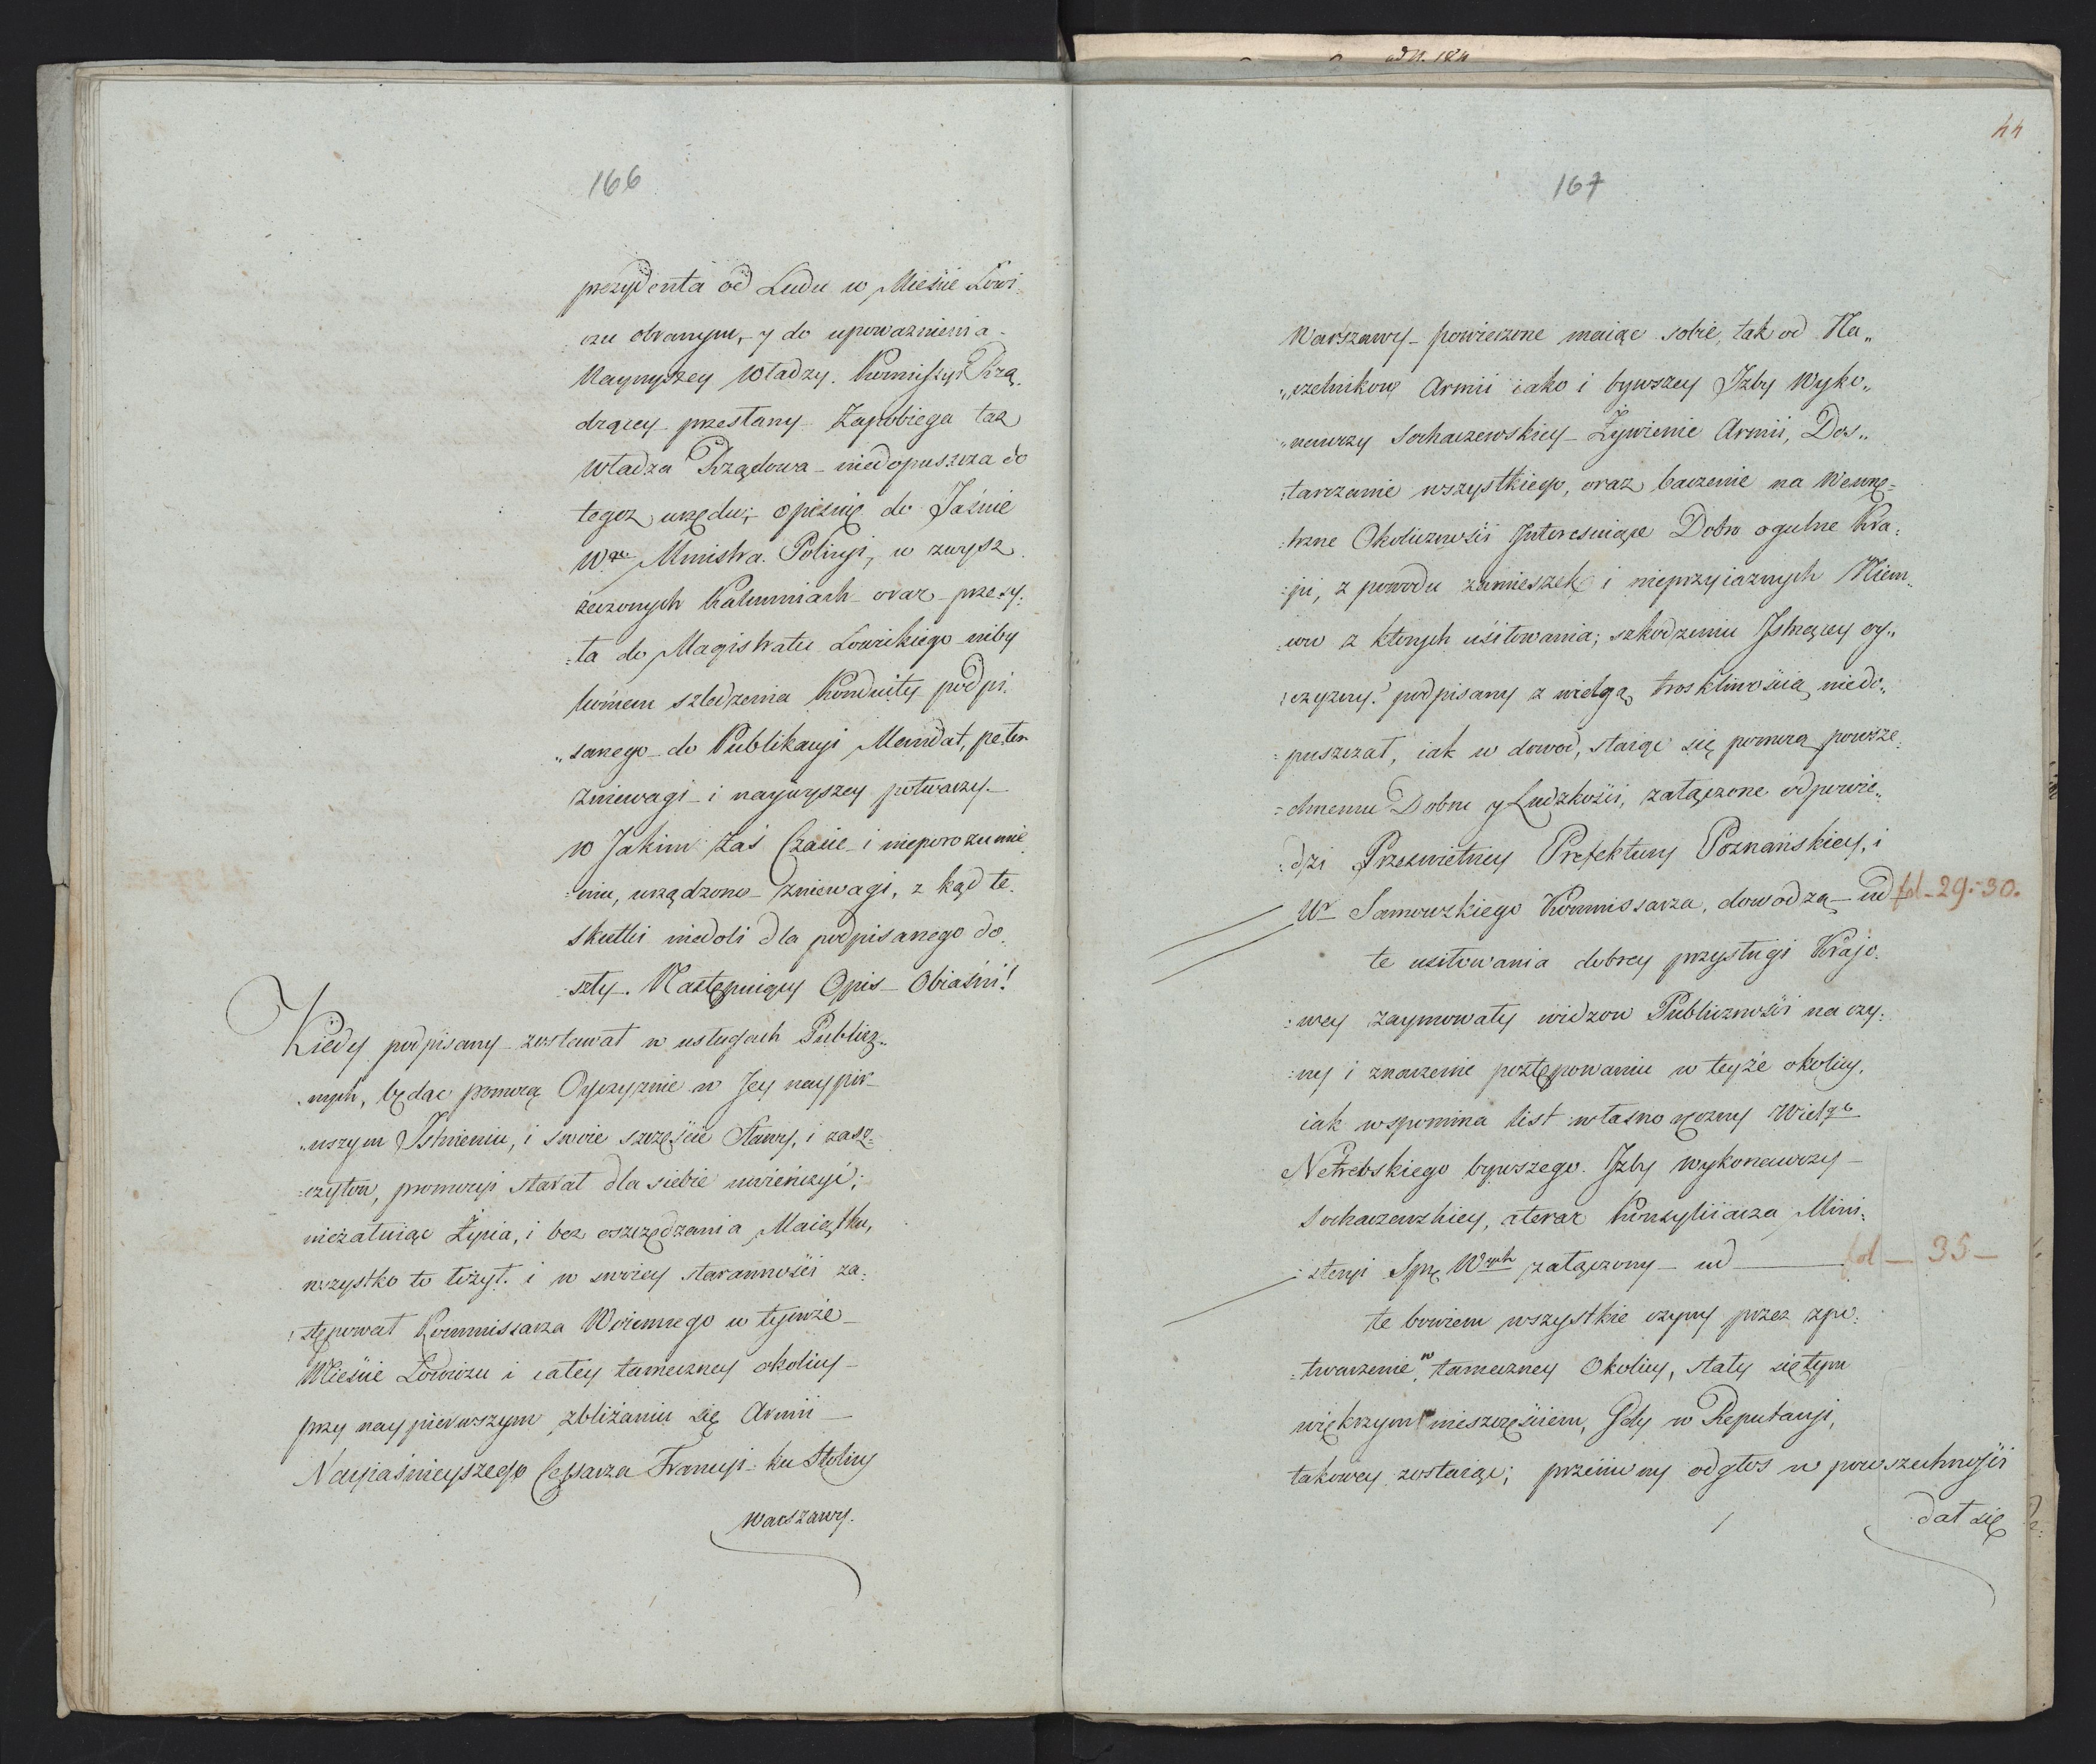 166
prezydenta od Ludu w Mieście Łowi-
czu obranym, y do upoważnienia
Naywyższey Władzy Kommissyi Rzą-
dzącey przesłany Zapobiega taż
Władza Rządowa niedopuszcza do
tegoż urzędu; opiśnię do Jaśnie
Wgo Ministra Policyi, w zwysz
rzeczonych Kalumniach oraz przesy-
:ła do Magistratu Łowickiego niby
szledzenia Konduity podpi-
„sanego do Publikacyi Mandat, pełen
zniewagi i naywyszey potwarzy.
w Jakim zaś Czasie i nieporozumie
:niu, urządzono zniewagi, z kąd te
skutki niedoli dla podpisanego do
:szły. Następuiący Opis Obiaśni!
Kiedy podpisany zostawał w usługach Publicz„
nych, będąc pomocą Oyczyznie w Jey naypier-
„wszym Istnieniu, i swoie szczęście Sławy, i zasz-
:czytow, promocyi starał dla siebie uwieńczyć;
nieżałuiąc Życia, i bez oszczędzania Maiątku,
wszystko to łożył. i w swoiey staranności za:
:stępował Kommissarza Woiennego w tymże
Mieście Łowiczu i całey tameczney okolicy
przy naypierwszym zbliżaniu się Armii
Nayiaśnieyszego Cessarza Francyi ku Stolicy
Warszawy.
44
167
Warszawy powierzone maiąc sobie, tak od Na„
„czelnikow Armii iako i bywszey Izby Wyko„
„nawczy Sochaczewskiey Żywienie Armii, Dos„
:tarczanie wszystkiego, oraz baczenie na Wewnę=
:trzne Okoliczności Interesuiące Dobro ogulne Kra:
:ju, z powodu zamieszek i nieprzyiaznych Niem
:cow z ktorych usiłowania; szkodzeniu Istnącey oy„
:czyzny! podpisany z wielgą troskliwością niedo„
:puszczał, iak w dowod, staiąc się pomocą powsze
:chnemu Dobru y Ludzkości, załączone odpowie„
:dzi Prześwietney Prefektury Poznańskiey, i
Wo Samowskiego Kommissarza, dowodzą ud fol. 29.-30.
te usiłowania dobrey przysługi Krajo.
:wey zaymowały widzow Publiczności na czy:
:ny i znaczenie postępowaniu w teyże okolicy,
iak wspomina list własno ręczny Wielgo
Netrebskiego bywszego Izby wykonawczy
Sochaczewskiey, a teraz Konsyliiarza Mini:
:steryi Spr. Wnych załączony ud fol - 35 -
te bowiem wszystkie czyny przez spo:
:twarzenie, w tameczney Okolicy, stały się tym
większym nieszczęściem, Gdy w Reputacyi,
takowey zostaiąc; przeciwny odgłos w powszechności
dał się